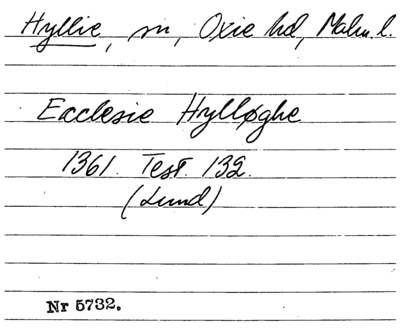 Hyllie, sn, Oxie hd, Malm. l.
Ecclesie Hylløghe
1361. Test. 132.
(Lund)
Nr 5732.